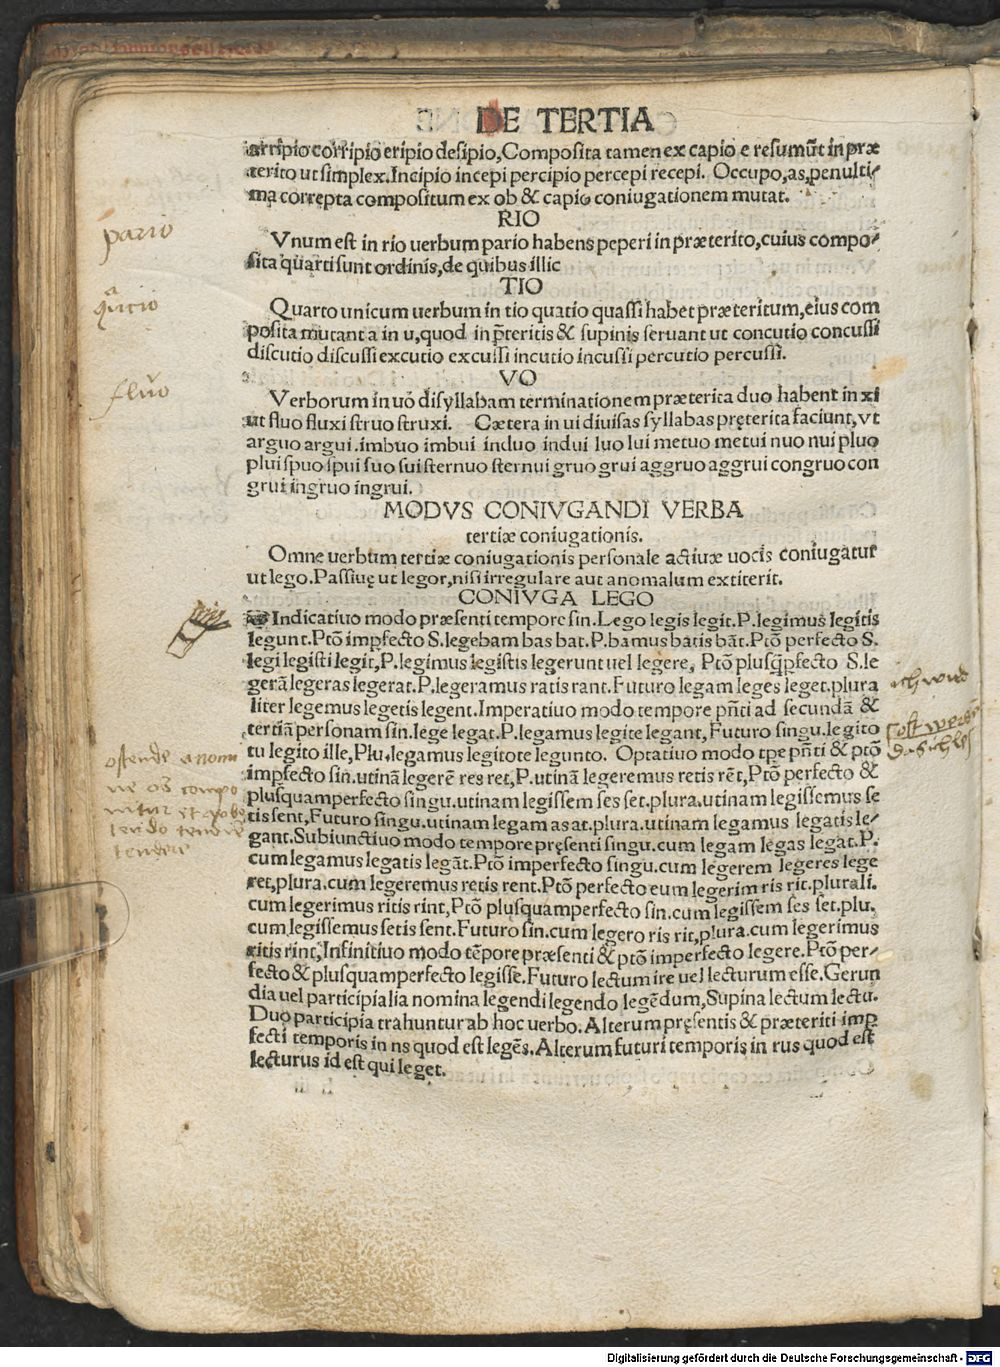 DE TERTIA
arripio corripio eripio desipio, Composita tamen ex capio e resumūt in præ
terito ut simplex. Incipio incepi percipio percepi recepi. Occupo, as, penulti-
ma correpta compositum ex ob & capio coniugationem mutat.
RIO
Vnum est in rio uerbum pario habens peperi in præterito, cuius compo-
sita quarti sunt ordinis, de quibus illic
pario
TIO
Quarto unicum uerbum in tio quatio quassi habet præteritum, eius com
posita mutant a in u, quod in p̄teritis & supinis seruant ut concutio concussi
discutio discussi excutio excussi incutio incussi percutio percussi.
VO
Verborum in uo disyllabam terminationem præterita duo habent in xi
ut fluo fluxi struo struxi. Cætera in ui diuisas syllabas pręterita faciunt, vt
arguo argui. imbuo imbui induo indui luo lui metuo metui nuo nui pluo
plui spuo spui suo sui sternuo sternui gruo grui aggruo aggrui congruo con
grui ingruo ingrui.
fluo
MODVS CONIVGANDI VERBA
tertiæ coniugationis.
Omne uerbum tertiæ coniugationis personale actiuæ uocis coniugatur
ut lego. Passiuę ut legor, nisi irregulare aut anomalum extiterit.
CONIVGA LEGO
Indicatiuo modo præsenti tempore sin. Lego legis legit. P. legimus legitis
legunt. Ptō impfecto S. legebam bas bat. P. bamus batis bāt. Ptō perfecto S.
legi legisti legit, P. legimus legistis legerunt uel legere, Ptō plusq̄pfecto S. le
gerā legeras legerat. P. legeramus ratis rant. Futuro legam leges leget. plura
liter legemus legetis legent. Imperatiuo modo tempore pn̄ti ad secundā &
tertiā personam sin. lege legat. P. legamus legite legant, Futuro singu. legito
tu legito ille, Plu. legamus legitote legunto. Optatiuo modo tp̄e pn̄ti & ptō
impfecto sin. utinā legerē res ret, P. utinā legeremus retis rēt, Ptō perfecto &
plusquamperfecto singu. utinam legissem ses set. plura. utinam legissemus se
tis sent, Futuro singu. utinam legam as at. plura. utinam legamus legatis le-
gant. Subiunctiuo modo tempore pręsenti singu. cum legam legas legat. P.
cum legamus legatis legāt. Ptō imperfecto singu. cum legerem legeres lege
ret, plura. cum legeremus retis rent. Ptō perfecto eum legerim ris rit. plurali.
cum legerimus ritis rint, Ptō plusquamperfecto sin. cum legissem ses set. plu.
cum legissemus setis sent. Futuro sin. cum legero ris rit, plura. cum legerimus
ritis rint, Infinitiuo modo tēpore præsenti & ptō imperfecto legere. Ptō per-
fecto & plusquamperfecto legisse. Futuro lectum ire uel lecturum esse. Gerun
dia uel participialia nomina legendi legendo legēdum, Supina lectum lectu.
Duo participia trahuntur ab hoc uerbo. Alterum pręsentis & præteriti imp
fecti temporis in ns quod est legēs. Alterum futuri temporis in rus quod est
lecturus id est qui leget.
ostende
tendo
tendere
Digitalisierung gefördert durch die Deutsche Forschungsgemeinschaft - DFG